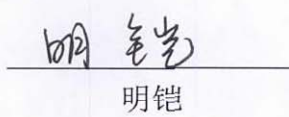 明铠
明铠